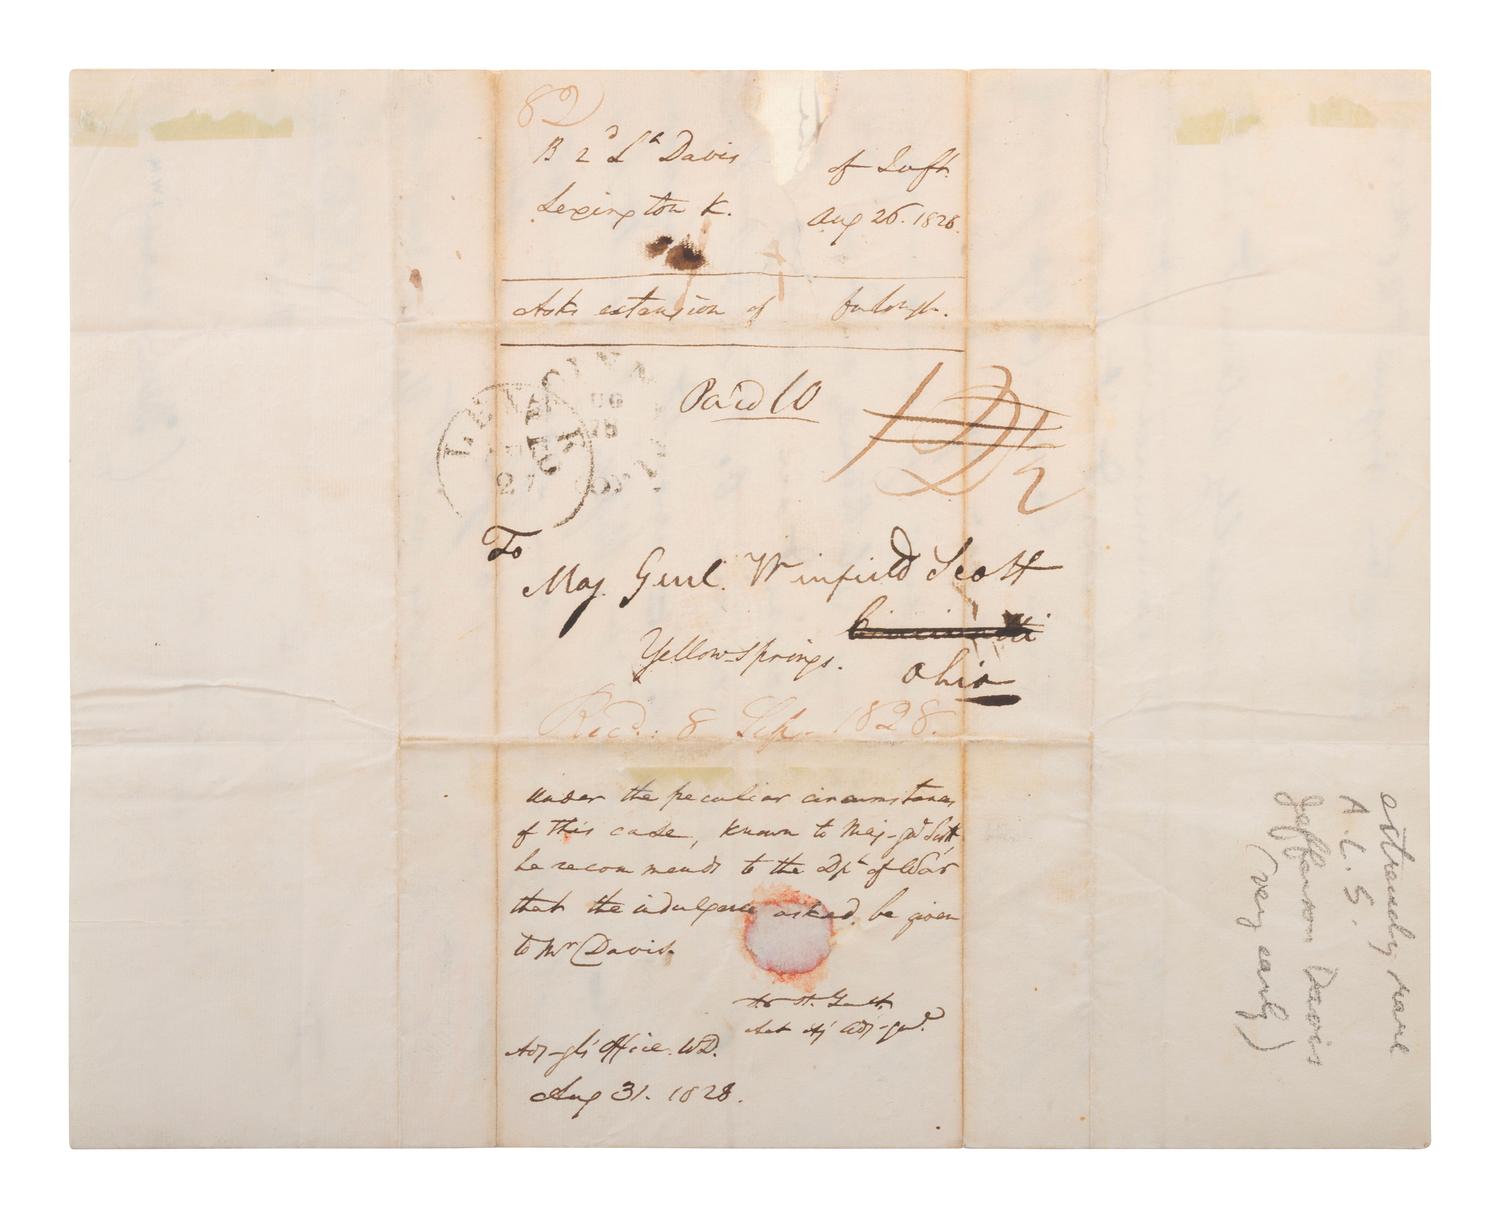 82
B 2d Lt Davis of Inft.
Lexington K. Aug 26. 1828.
Asks extension of furlough.
Paid 10
12½
LEXINGTON KY
AUG
27
To
Maj. Genl. Winfield Scott
Cincinnatti
Yellow Springs. Ohio
Recd.: 8 Sep. 1828.
Under the peculiar circumstances
of this case, known to Maj-Genl Scott,
he recommends to the Dpt of War
that the indulgence asked, be given
to Mr Davis.
Act Adj-Genl.
Adj-Gl's Office. WD.
Aug 31. 1828.
extremely rare
A. L. S.
Jefferson Davis
(very early)